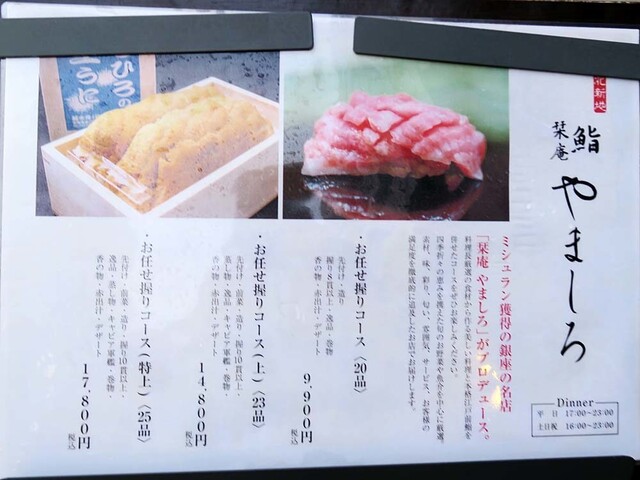 北新地
鮨
栞庵
やましろ
Dinner
平 日 17:00~23:00
土日祝 16:00~23:00
ミシュラン獲得の銀座の名店
「栞庵 やましろ」がプロデュース。
料理長厳選の食材から作る美しい料理・本格江戸前鮨を
併せたコースをぜひお楽しみください。
四季折々の恵みを渡えた旬のお野菜や魚介を中心に厳選。
素材、味、彩り、匂い、雰囲気、サービス、お客様の
満足度を徹底的に追及したお店でお届けします。
・お任せ握りコース〈20品〉
先付け・造り
握り8貫以上・逸品・巻物
香の物・赤出汁・デザート
9,900円
税込
・お任せ握りコース(上)〈23品〉
先付け・前菜・造り・握り10貫以上・
蒸し物・逸品・キャビア軍艦・巻物・
香の物・赤出汁・デザート
14,800円
税込
・お任せ握りコース(特上)〈25品〉
先付け・前菜・造り・握り10貫以上・
逸品・蒸し物・キャビア軍艦・巻物・
香の物・赤出汁・デザート
17,800円
税込
ひろの
うに